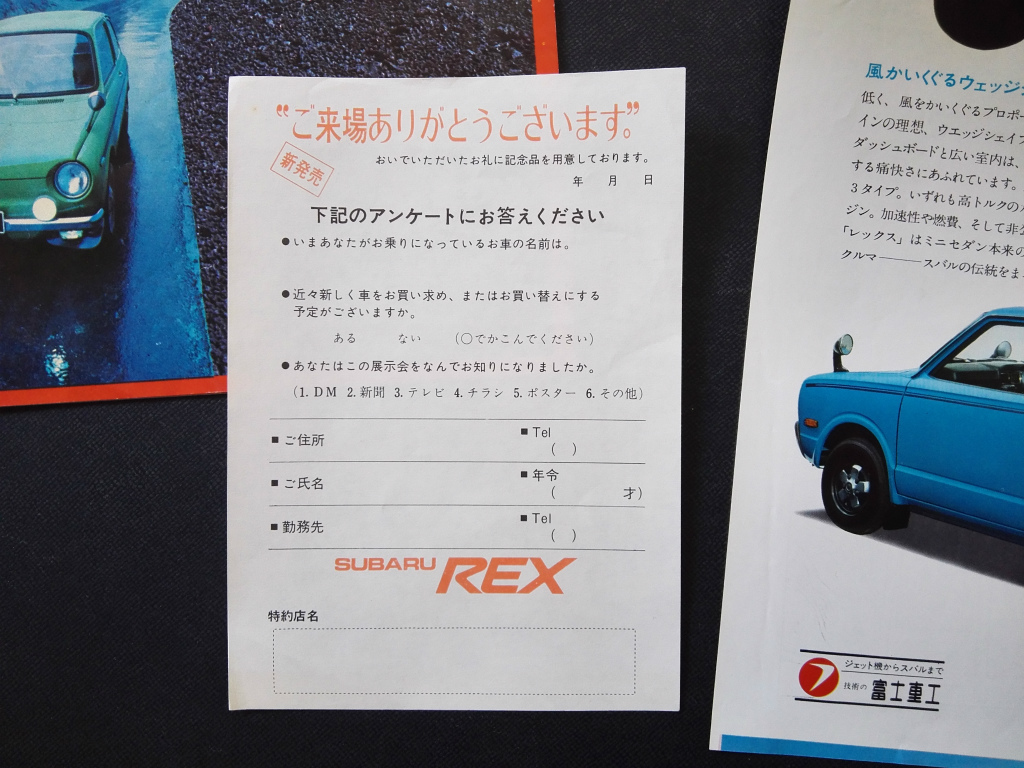 “ご来場ありがとうございます。”
新発売
おいでいただいたお礼に記念品を用意しております。
年 月 日
下記のアンケートにお答えください
●いまあなたがお乗りになっているお車の名前は。
●近々新しく車をお買い求め、またはお買い替えにする
予定がございますか。
ある ない (○でかこんでください)
●あなたはこの展示会をなんでお知りになりましたか。
(1. DM 2. 新聞 3. テレビ 4. チラシ 5. ポスター 6. その他)
■ご住所 ■Tel
( )
■ご氏名 ■年令
( 才)
■勤務先 ■Tel
( )
SUBARU REX
特約店名
風かいくぐるウェッジ
低く、風をかいくぐるプロポー
インの理想、ウエッジシェイプ
ダッシュボードと広い室内は、
する痛快さにあふれています。
3タイプ。いずれも高トルクの
ジン。加速性や燃費、そして非
「レックス」はミニセダン本来の
クルマ――スバルの伝統をま
ジェット機からスバルまで
技術の 富士重工